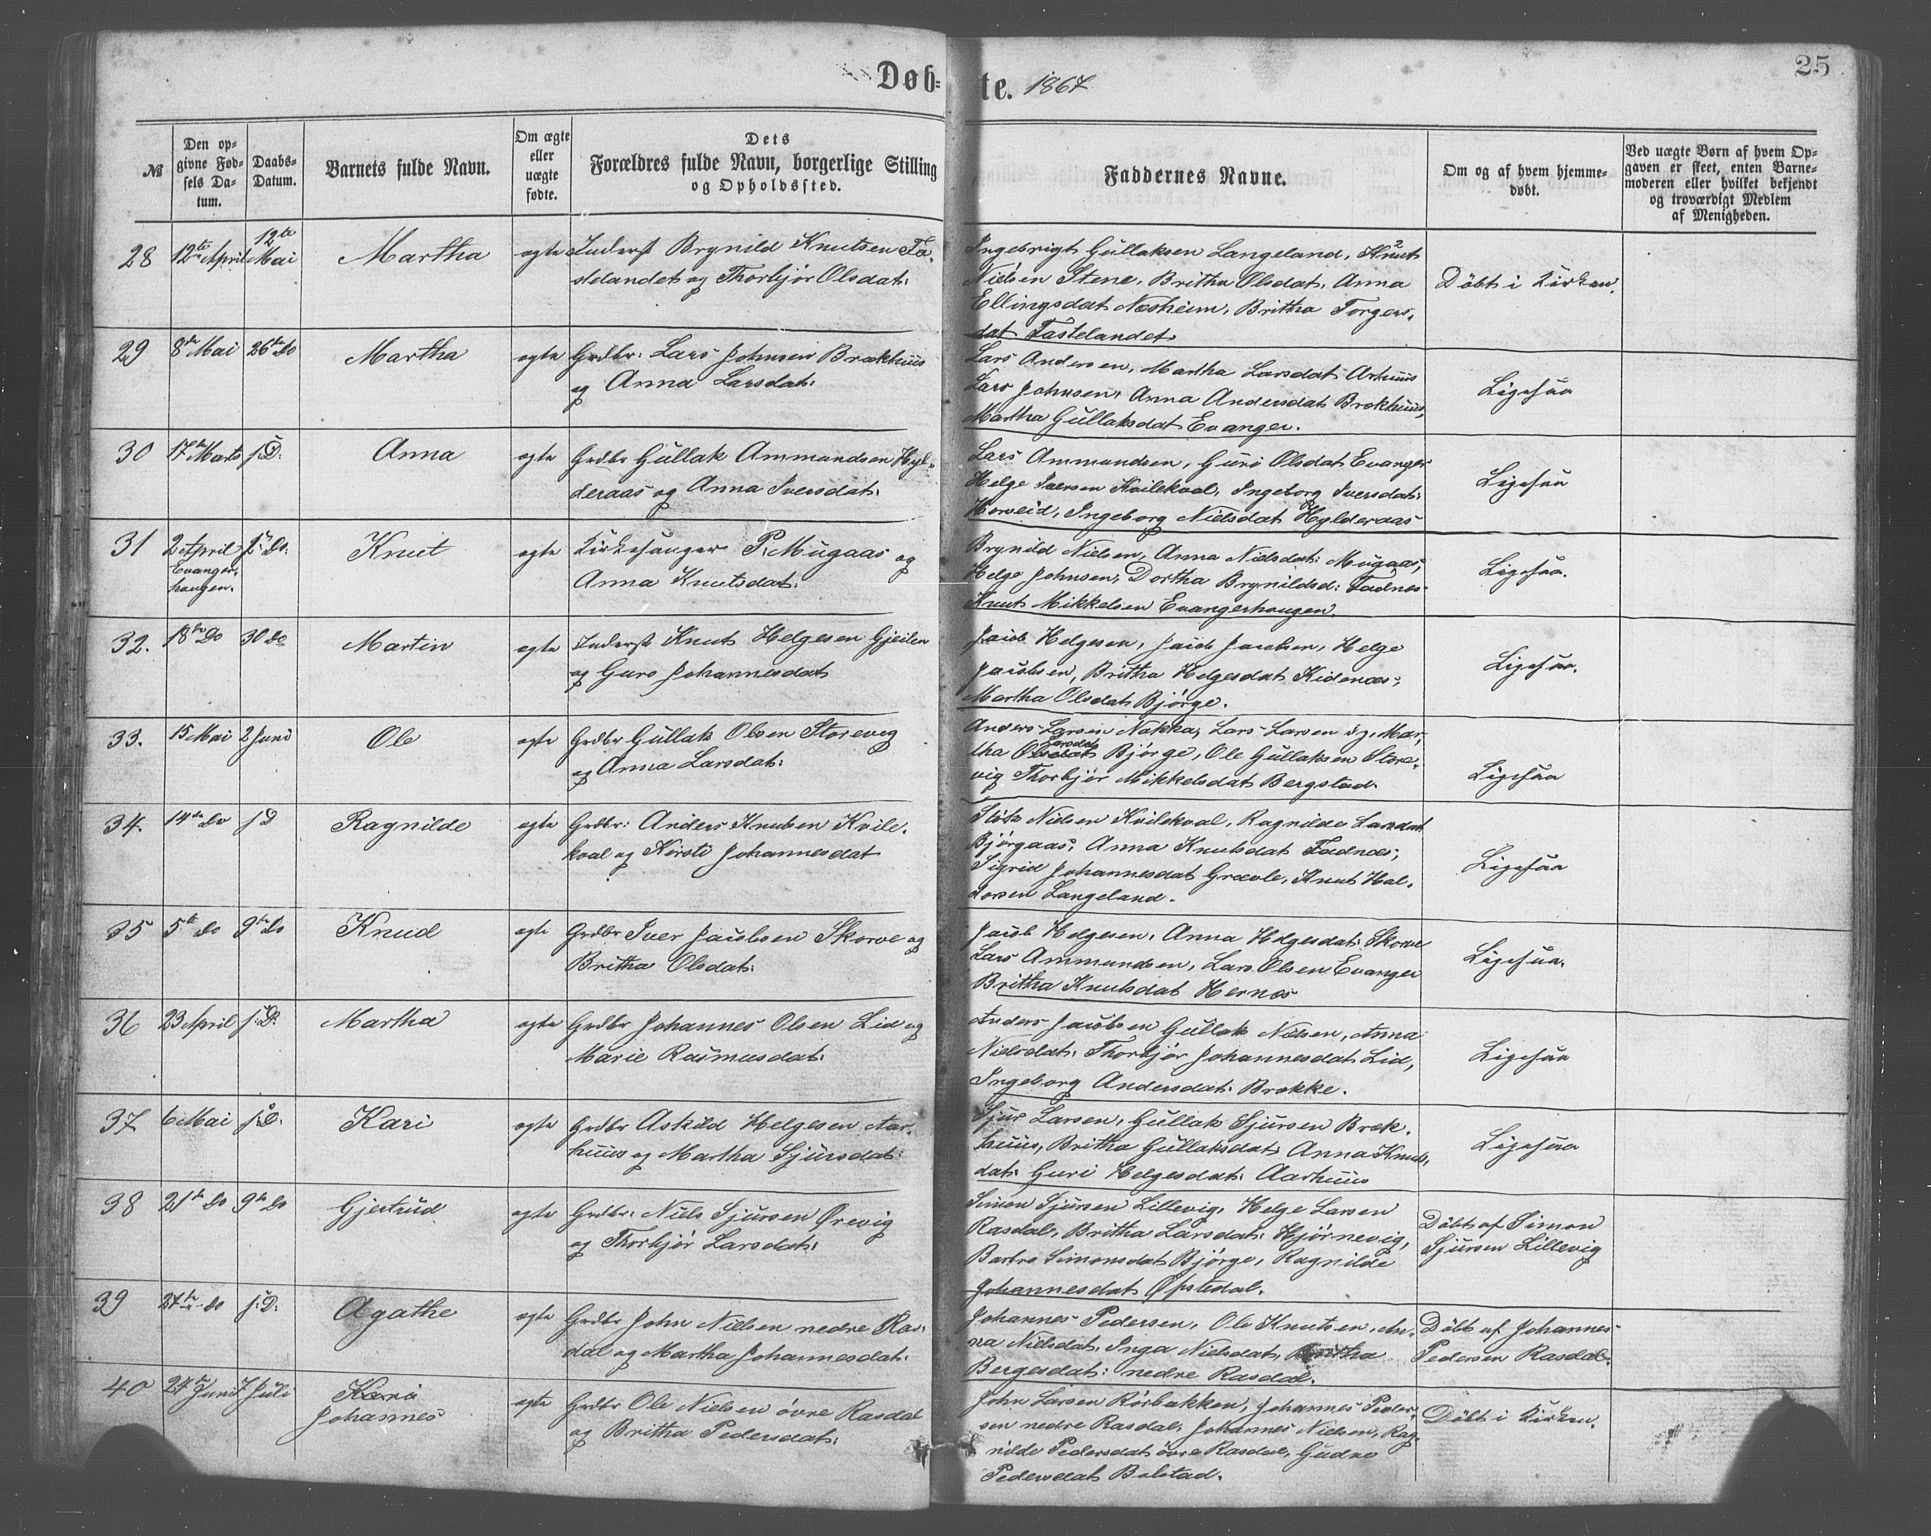 Døb=te. 1867
25
№
Den opgivne Fødsels Datum.
Daabs-Datum.
Barnets fulde Navn.
Om ægte eller uægte fødte.
Dets Forældres fulde Navn, borgerlige Stilling og Opholdssted.
Faddernes Navne.
Om og af hvem hjemmedøbt.
Ved uægte Børn af hvem Opgaven er skeet, enten Barnemoderen eller hvilket bekjendt og troværdigt Medlem af Menigheden.
28 12te April 12te Mai Martha ægte Inderst Brynild Knutsen Fa-
stelandet og Thorbjør Olsdat:
Ingebrigt Gullaksen Langeland, Knut
Nielsen Stene, Britha Olsdat, Anna
Ellingsdat Næsheim, Britha Torgers-
dat Fastelandet
Døbt i Kirken.
29 8de Mai 26de Do Martha ægte Grdbr: Lars Johnsen Brækhuus
og Anna Larsdat:
Lars Andersen, Martha Larsdat Aarhuus
Lars Johnsen, Anna Andersdat Brækhuus,
Martha Gullaksdat Evanger.
Ligesaa
30 17de Marts s: D: Anna ægte Grdbr Gullak Ammundsen Hyl-
deraas og Anna Iversdat:
Lars Ammundsen, Guro Olsdat Evanger
Helge Iversen Kvilekval, Ingeborg Iversdat:
Horveid, Ingeborg Nielsdat Hylderaas
Ligesaa
31 2 April s: Do: Knut ægte Kirkesanger P. Mugaas og
Evanger-
haugen.
Anna Knutsdat:
Brynild Nielsen, Anna Nielsdat: Mugaas,
Helge Johnsen, Dortha Brynildsd: Fadnes
Knut Mikkelsen Evangerhaugen.
Ligesaa.
32. 18de Do 30 Do Martin ægte Inderst Knut Helgesen Gjeilen
og Guro Johannesdat
Jacob Helgesen, Jacob Jacobsen, Helge
Jacobsen, Britha Helgesdat Kidenæs,
Martha Olsdat Bjørge.
Ligesaa.
33. 15 Mai 2 Juni Ole ægte Grdbr Gullak Olsen Storevig
og Anna Larsdat:
Anders Larsen Nakka, Lars Larsen Mar-
tha Larsdat Bjørge, Ole Gullaksen Store-
vig Thorbjør Mikkelsdat Bergstad.
Ligesaa
34. 14de Do s: D Ragnilde ægte Grdbr: Anders Knutsen Kvile-
kval og Kirsti Johannesdat
Nielsen Kvilekval, Ragnilde Larsdat
Bjørgaas, Anna Knutsdat Fadnæs,
Sigrid Johannesdat Grævle, Knut Hal-
dorsen Langeland.
Ligesaa
35 5te Do 9de Do Knud ægte Grdbr Iver Jacobsen Skorve og
Britha Olsdat:
Jacob Helgesen, Anna Helgesdat: Skorve
Lars Ammundsen, Lars Olsen Evanger
Britha Knutsdat Hernæs
Ligesaa.
36 23 April s: D: Martha ægte Grdbr Johannes Olsen Lid og
Marie Rasmusdat:
Anders Jacobsen Gullak Nilsen, Anna
Nielsdat: Thorbjør Johannesdat Lid,
Ingeborg Andersdat: Brække.
Ligesaa
37. 6 Mai s: D: Kari ægte Grdbr Askild Helgesen Aar-
huus og Martha Sjursdat:
Sjur Larsen, Gullak Sjursen Bræk-
huus, Britha Gullaksdat Anna Knuts-
dat: Guri Helgesdat: Aarhuus
Ligesaa
38 21de Do 9de Do Gjertrud ægte Grdbr: Niels Sjursen Ørevig
og Thorbjør Larsdat:
Simon Sjursen Lillevig, Helge Larsen
Rasdal, Britha Larsdat: Hjørnevig,
Barbro Simonsdat Bjørge, Ragnilde
Johannesdat Øpstedal.
Døbt af Simon
Sjursen Lillevig
39 27de Do s: D: Agathe ægte Grdbr John Nielsen nedre Ras-
dal og Martha Johannesdat:
Johannes Pedersen, Ole Knutsen, An-
na Nielsdat, Inga Nielsdat, Britha
Bergesdat: nedre Rasdal.
Døbt af Johannes
Pedersen Rasdal.
40 24 Juni 7 Juli Kari
Johannes
ægte Grdbr Ole Nielsen øvre Rasdal
og Britha Pedersdat:
John Larsen Rørbakken, Johannes Peder-
sen nedre Rasdal, Johannes Nielsen, Rag-
nilde Pedersdat øvre Rasdal, Gudve
Pedersdat Bolstad.
Døbt i Kirken.